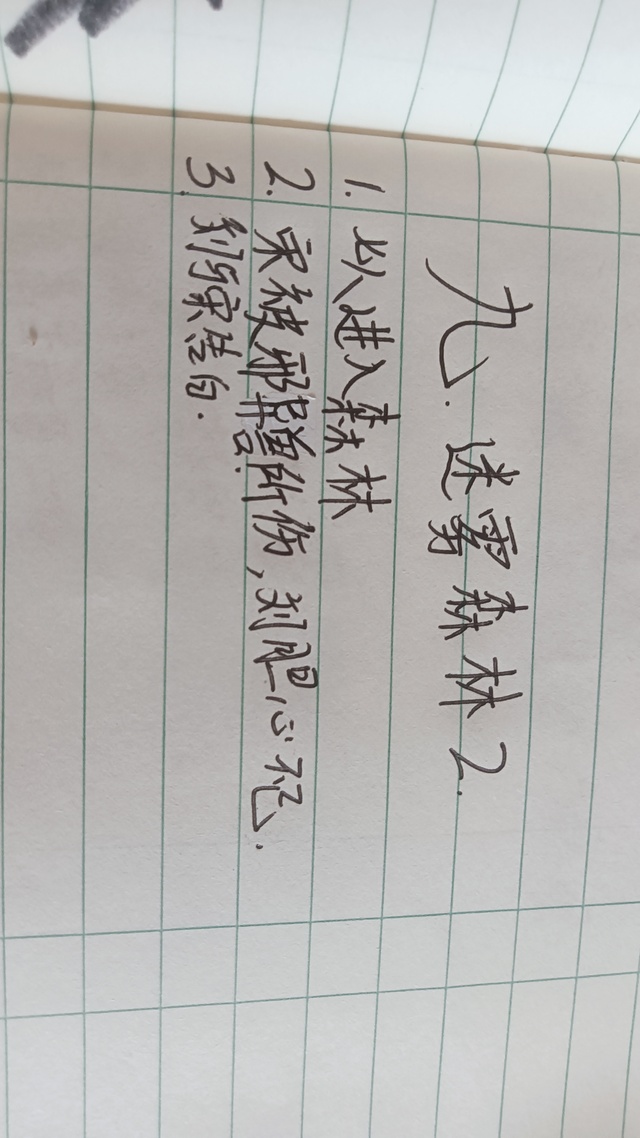 九. 迷雾森林2.
1. 以进入森林
2. 宋被邪兽所伤,刘胆心不已.
3. 刘与宋告白.